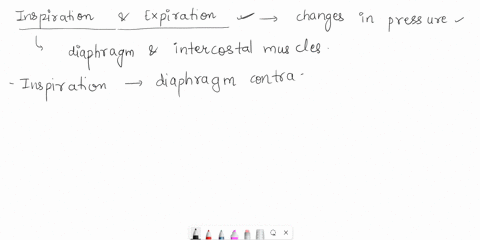 Inspiration & Expiration ✓ → changes in pressure ✓
↳ diaphragm & intercostal muscles.
- Inspiration → diaphragm contra